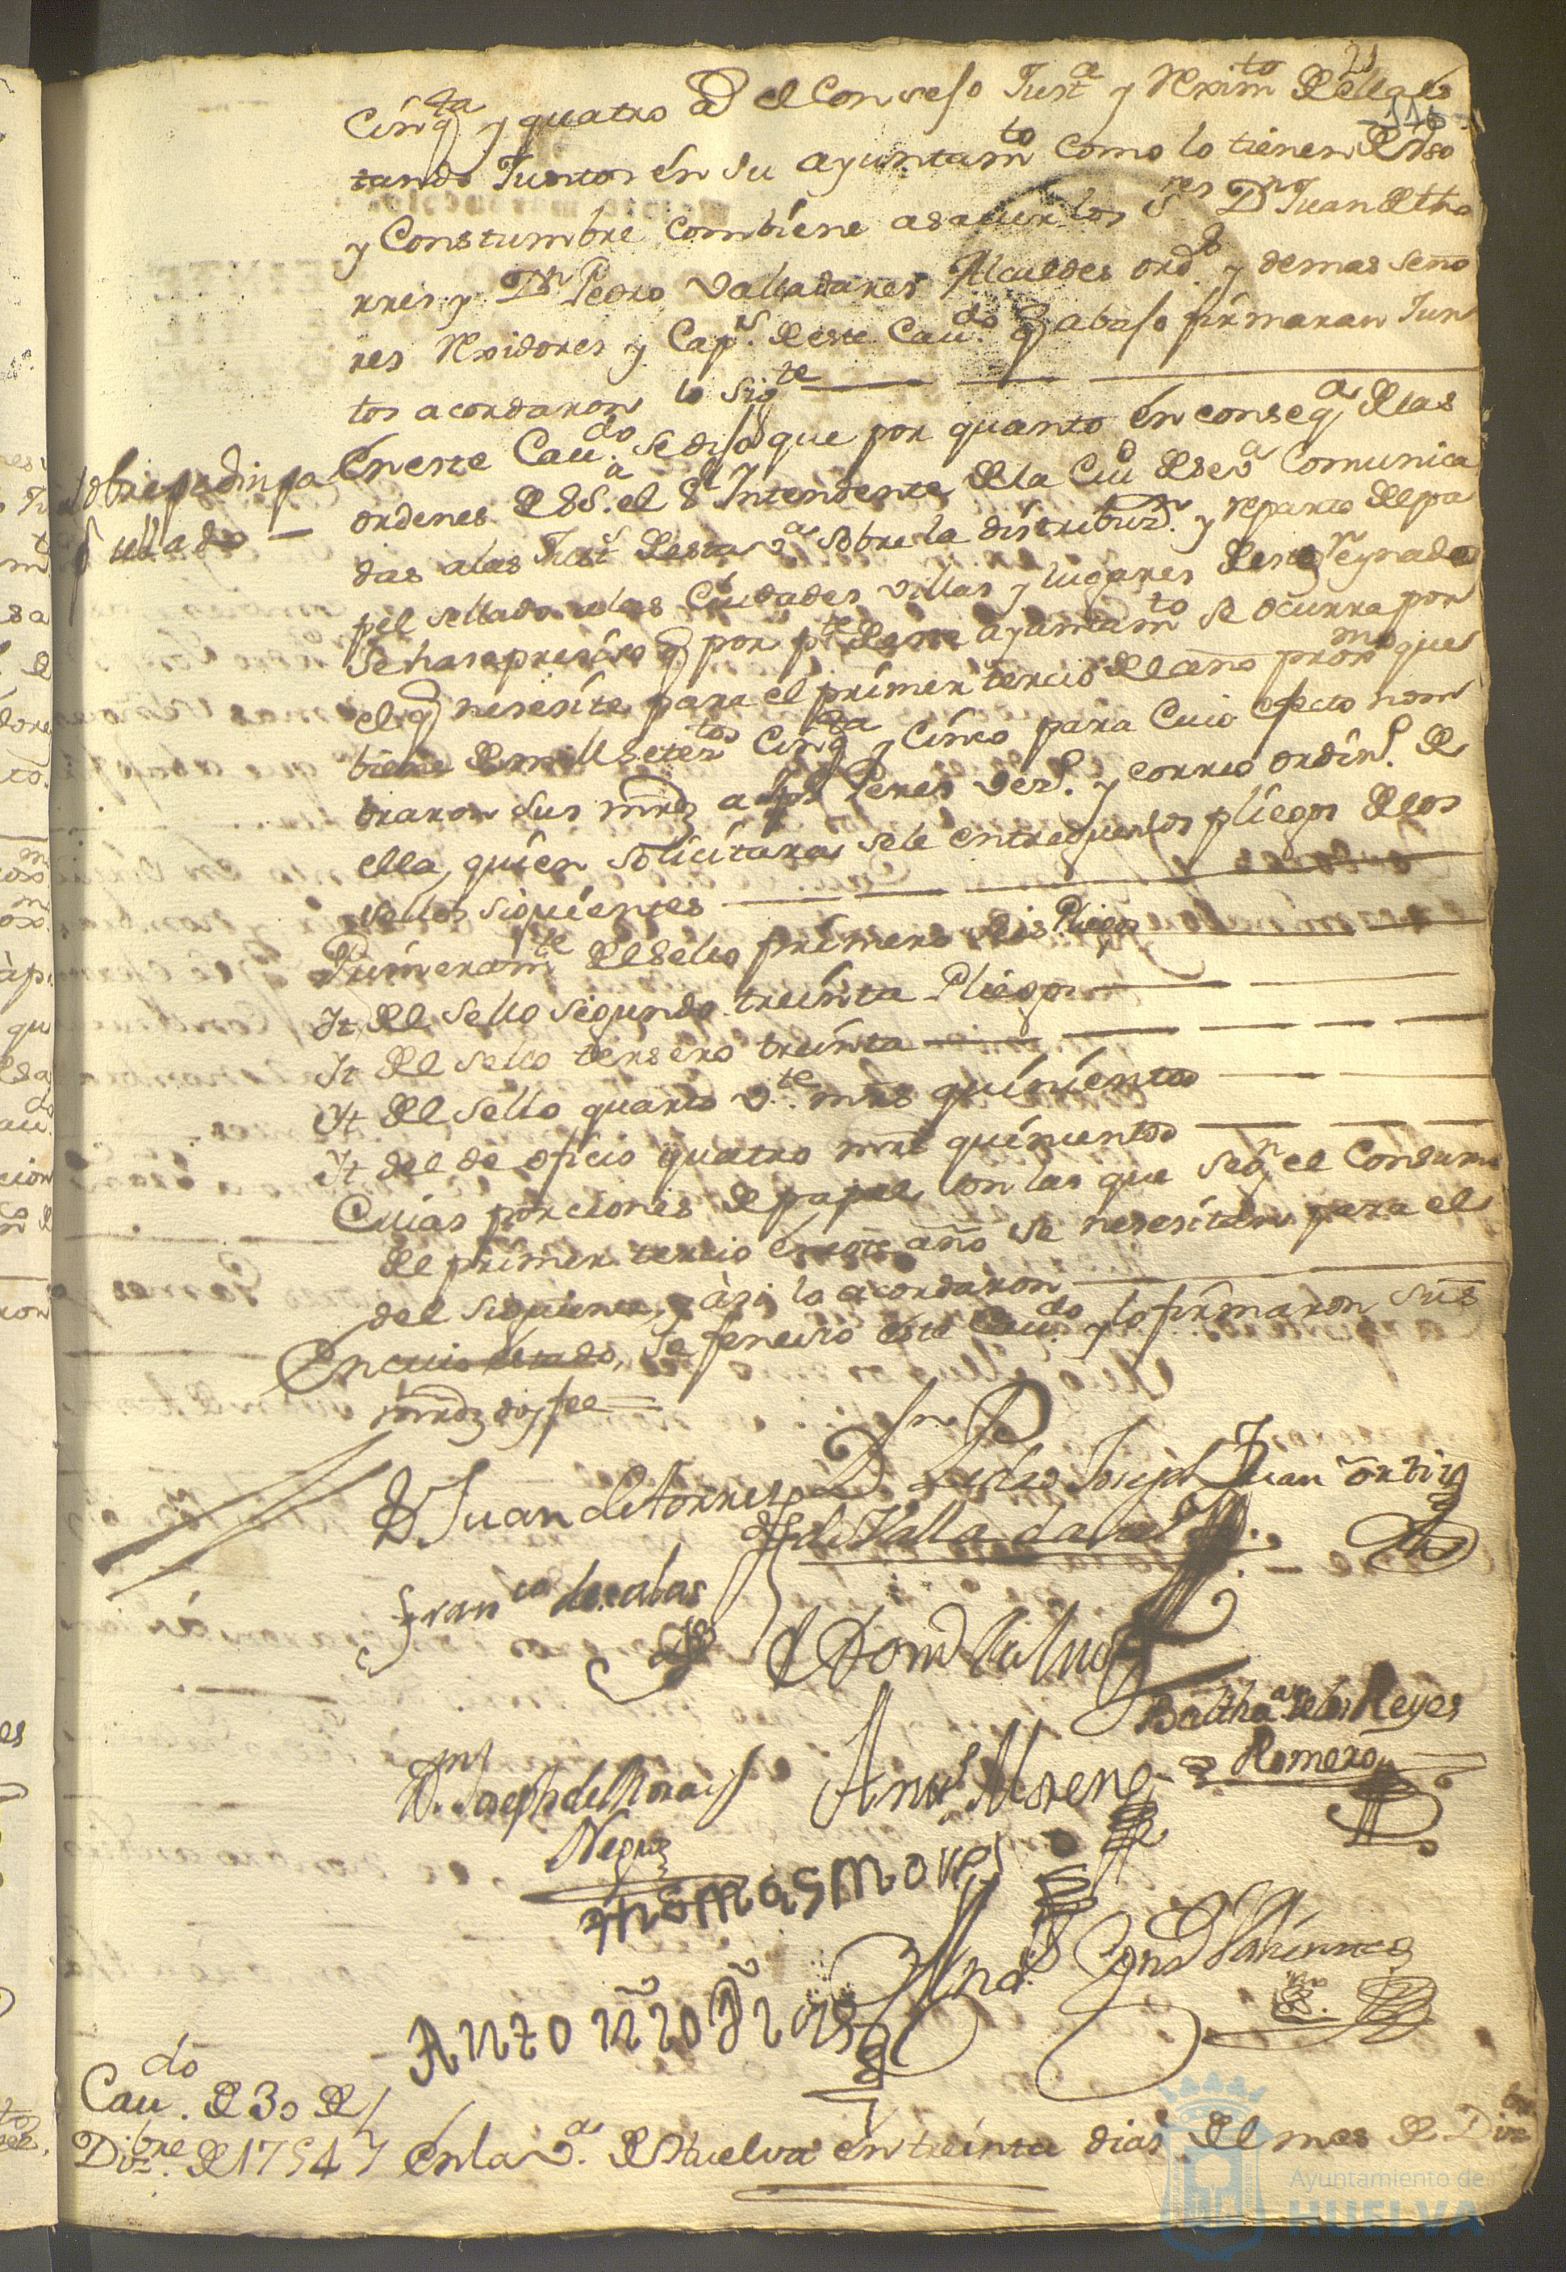 21
116
Cinqta y quatro ad el Consejo Justa y Reximto de ella es
tando Juntos en su ayuntamto como lo tienen de uso
y Constumbre Combiene a saver los sres Dn Juan de tho
rres y Dn Pedro Valladares Alcaldes ords y demas seño
res Rexidores y Caps. de este Cavdo. q abajo firmaran Jun
tos acordaron lo sigte
sobre pedir pa
pel sellado
En este Cavdo. se dijo que por quanto en conseqa de las
ordenes de S.Sa. el Sr Intendente de la Ciud de Seva Comunica
das a las Justs de esta Va sobre la distribuzn. y reparto del pa
pel sellado a las Ciudades Villas y lugares de este reynado
se hase presiso q por pte de este ayuntamto se ocurra por
el q nesesite para el primer tercio del año proxmo que
biene de mill setetos cinqta y cinco para Cuio efecto nom
braron sus mrds a Peres vezo. y correo ordino. de
ella, quien solicitara se le entreguen los pliegos de los
sellos siguientes
Primeramte del sello primero seis Pliegos
It del sello segundo treinta Pliegos
It del sello tersero treinta
It del sello quarto Vte. mrs quinientos
It del de oficio quatro mrs quinientos
Cuias porciones de papel son las que segn el Consumo
del primer tercio en este año se nesesitan para el
del siguiente, y asi lo acordaron
En cuio estado, se feneció este Cavdo. y lo firmaron sus
mrds doy fee
D Juan de torres
Dn Pedro Joseph
de Valladares
Juan ortiz
Franco de
Balthaar de los Reyes
Romero
Dn. Joseph del
Negro
Anto Moreno
thomas mo
Antonio
Cavdo. de 30 de
Dizbre. de 1754
En la Va. de Huelva en treinta dias del mes de Dizbre
Ayuntamiento de
HUELVA